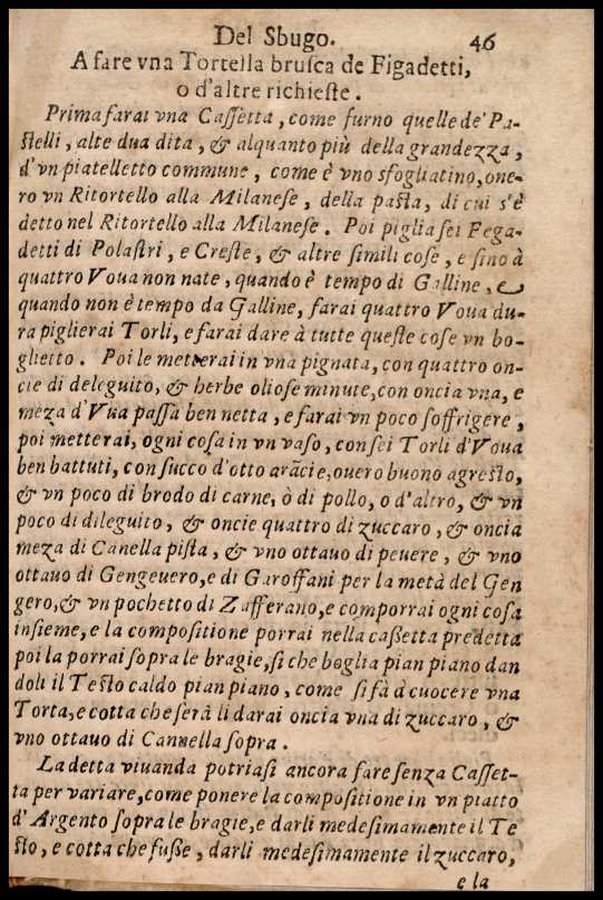 Del Sbugo. 46
A fare vna Tortella brusca de Figadetti,
o d'altre richieste.
Prima farai vna Cassetta, come furno quelle de' Pa-
stelli, alte dua dita, & alquanto più della grandezza,
d'vn piatelletto commune, come è vno sfogliatino, oue-
ro vn Ritortello alla Milanese, della pasta, di cui s'è
detto nel Ritortello alla Milanese. Poi piglia sei Fega-
detti di Polastri, e Creste, & altre simili cose, e sino à
quattro Voua non nate, quando è tempo di Galline, &
quando non è tempo da Galline, farai quattro Voua du-
ra piglierai Torli, e farai dare à tutte queste cose vn bo-
glietto. Poi le metterai in vna pignata, con quattro on-
cie di deleguito, & herbe oliose minute, con oncia vna, e
meza d'Vua passa ben netta, e farai vn poco soffrigere,
poi metterai, ogni cosa in vn vaso, con sei Torli d'Voua
ben battuti, con succo d'otto arãcie, ouero buono agresto,
& vn poco di brodo di carne, ò di pollo, o d'altro, & vn
poco di dileguito, & oncie quattro di zuccaro, & oncia
meza di Canella pista, & vno ottauo di peuere, & vno
ottauo di Gengeuero, e di Garoffani per la metà del Gen
gero, & vn pochetto di Zafferano, e comporrai ogni cosa
insieme, e la compositione porrai nella cassetta predetta
poi la porrai sopra le bragie, si che boglia pian piano dan
doli il Testo caldo pian piano, come si fà à cuocere vna
Torta, e cotta che serà li darai oncia vna di zuccaro, &
vno ottauo di Cannella sopra.
La detta viuanda potriasi ancora fare senza Casset-
ta per variare, come ponere la compositione in vn piatto
d'Argento sopra le bragie, e darli medesimamente il Te
sto, e cotta che fusse, darli medesimamente il zuccaro,
e la